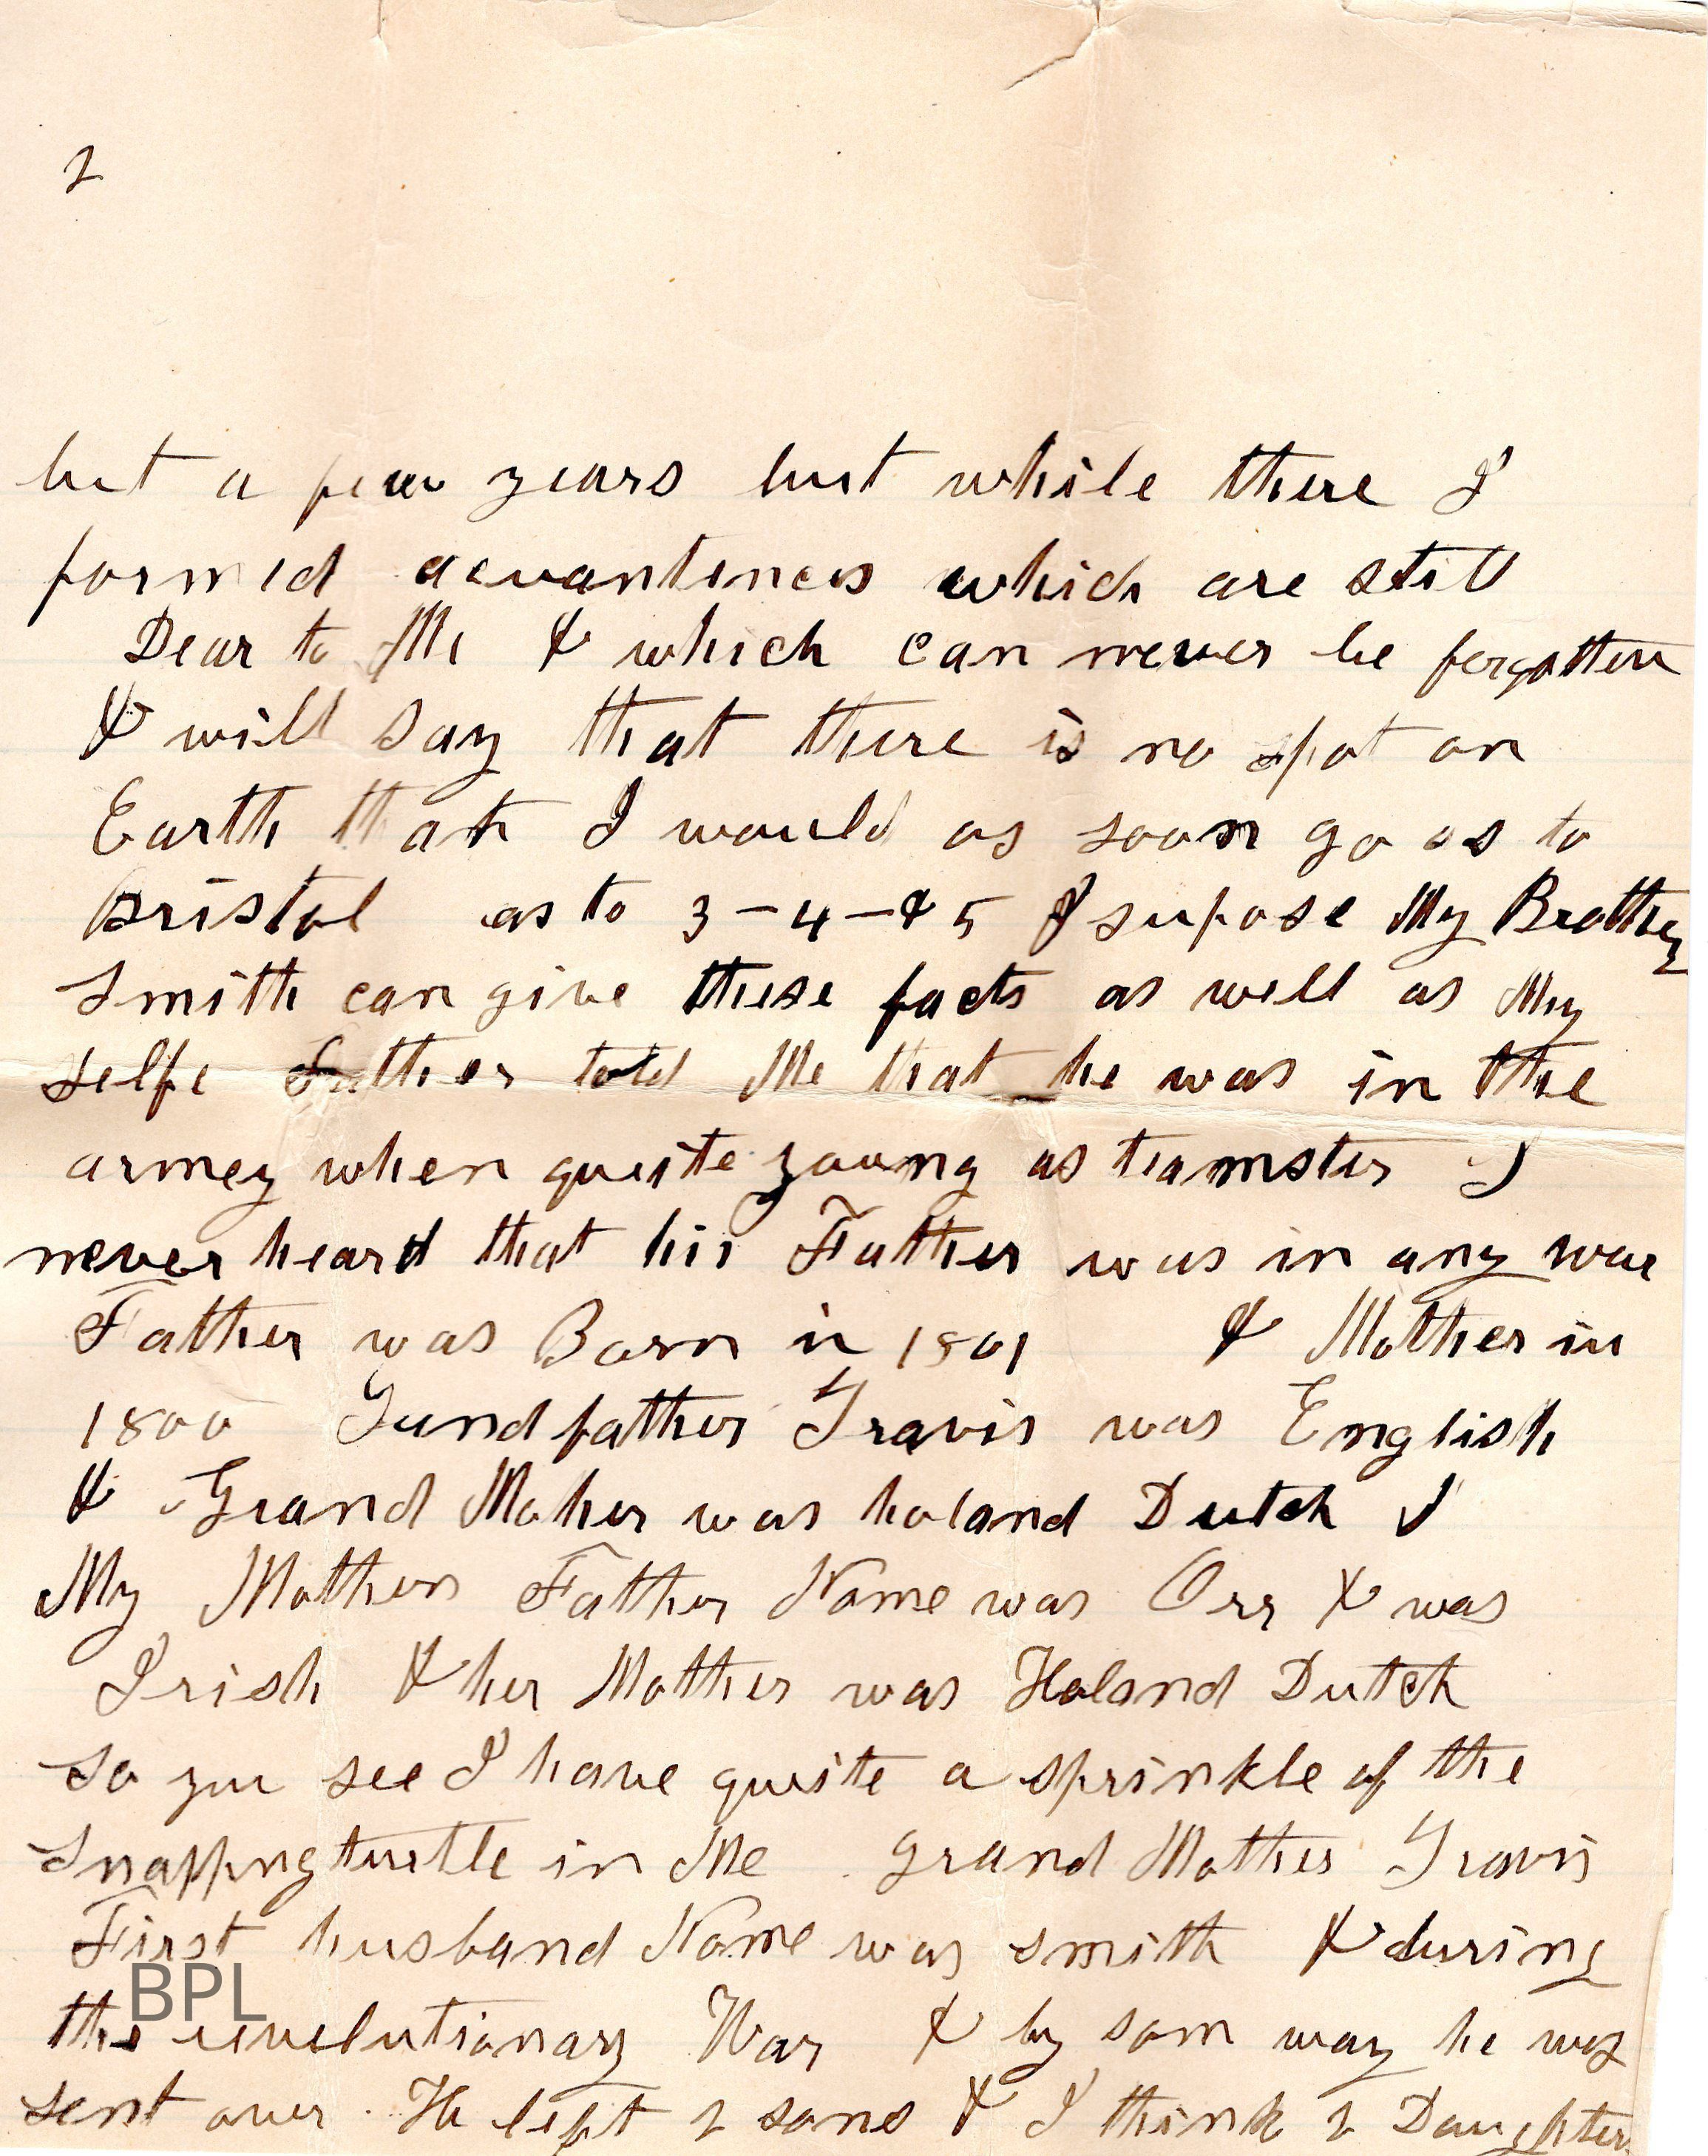 2
but a few years but while there I
formed acvantences which are still
Dear to Me & which can never be forgotten
& will say that there is no spot on
Earth that I would as soon go as to
Bristol as to 3-4-&5 I supose My Brother
Smith can give these facts as well as My
selfe Father told Me that he was in the
armey when quite young as teamster I
never heard that his Father was in any war
Father was Born in 1801 & Mother in
1800 Gandfather Travis was English
& Grand Moher was holand Dutch &
My Mothers Father Name was Orr & was
Irish & her Mother was Holand Dutch
So you see I have quite a sprinkle of the
Snapping turtle in Me Grand Mother Travis
First husband Name was smith & during
the revelutionary War & by som way he was
sent over. He left 2 sons & I think 2 Daughters
BPL